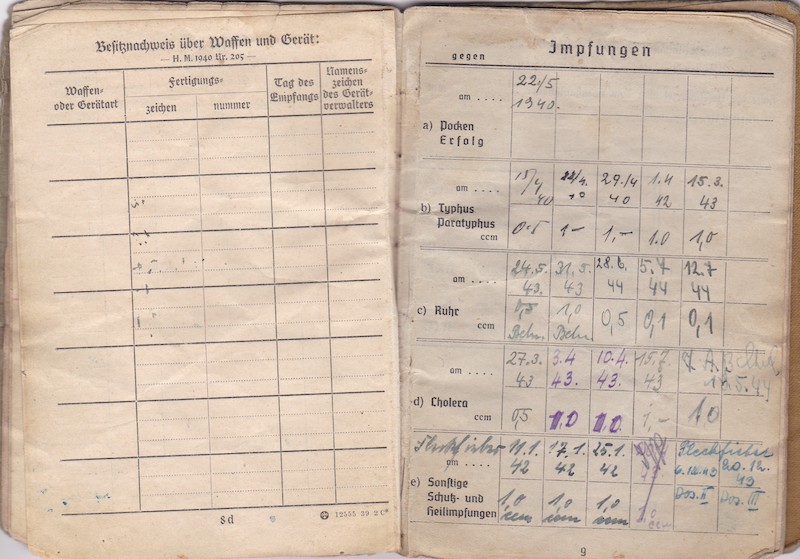 Besitznachweis über Waffen und Gerät:
— H. M. 1940 Nr. 205 —
Waffen- oder Gerätart
Fertigungs-
zeichen
nummer
Tag des Empfangs
Namens- zeichen des Gerät- verwalters
8d
12555 39 2 C
Impfungen
gegen
am . . . . 22/5 1940.
a) Pocken
Erfolg
am . . . . 15/4 40 22/4. 40 29./4 40 1.4 42 15.3. 43
b) Typhus
Paratyphus
ccm 0.5 1.– 1,– 1.0 1,0
am . . . . 24.5. 43. 31.5. 43 28.6. 44 5.7 44 12.7 44
c) Ruhr
ccm 0,5 1,0 0,5 0,1 0,1
am . . . . 27.3. 43 3.4 43. 10.4. 43. 15.7. 43
d) Cholera
ccm 0,5 1,0 1,0 1,– 1,0
Fleckfieber 11.1. 42 17.1 42 25.1. 42 Fleckfieber 6.12.43 20.12. 43
am . . . .
e) Sonstige
Schutz- und
Heilimpfungen 1,0 ccm 1,0 ccm 1,0 ccm 1,0 ccm Dos. II Dos. III
9